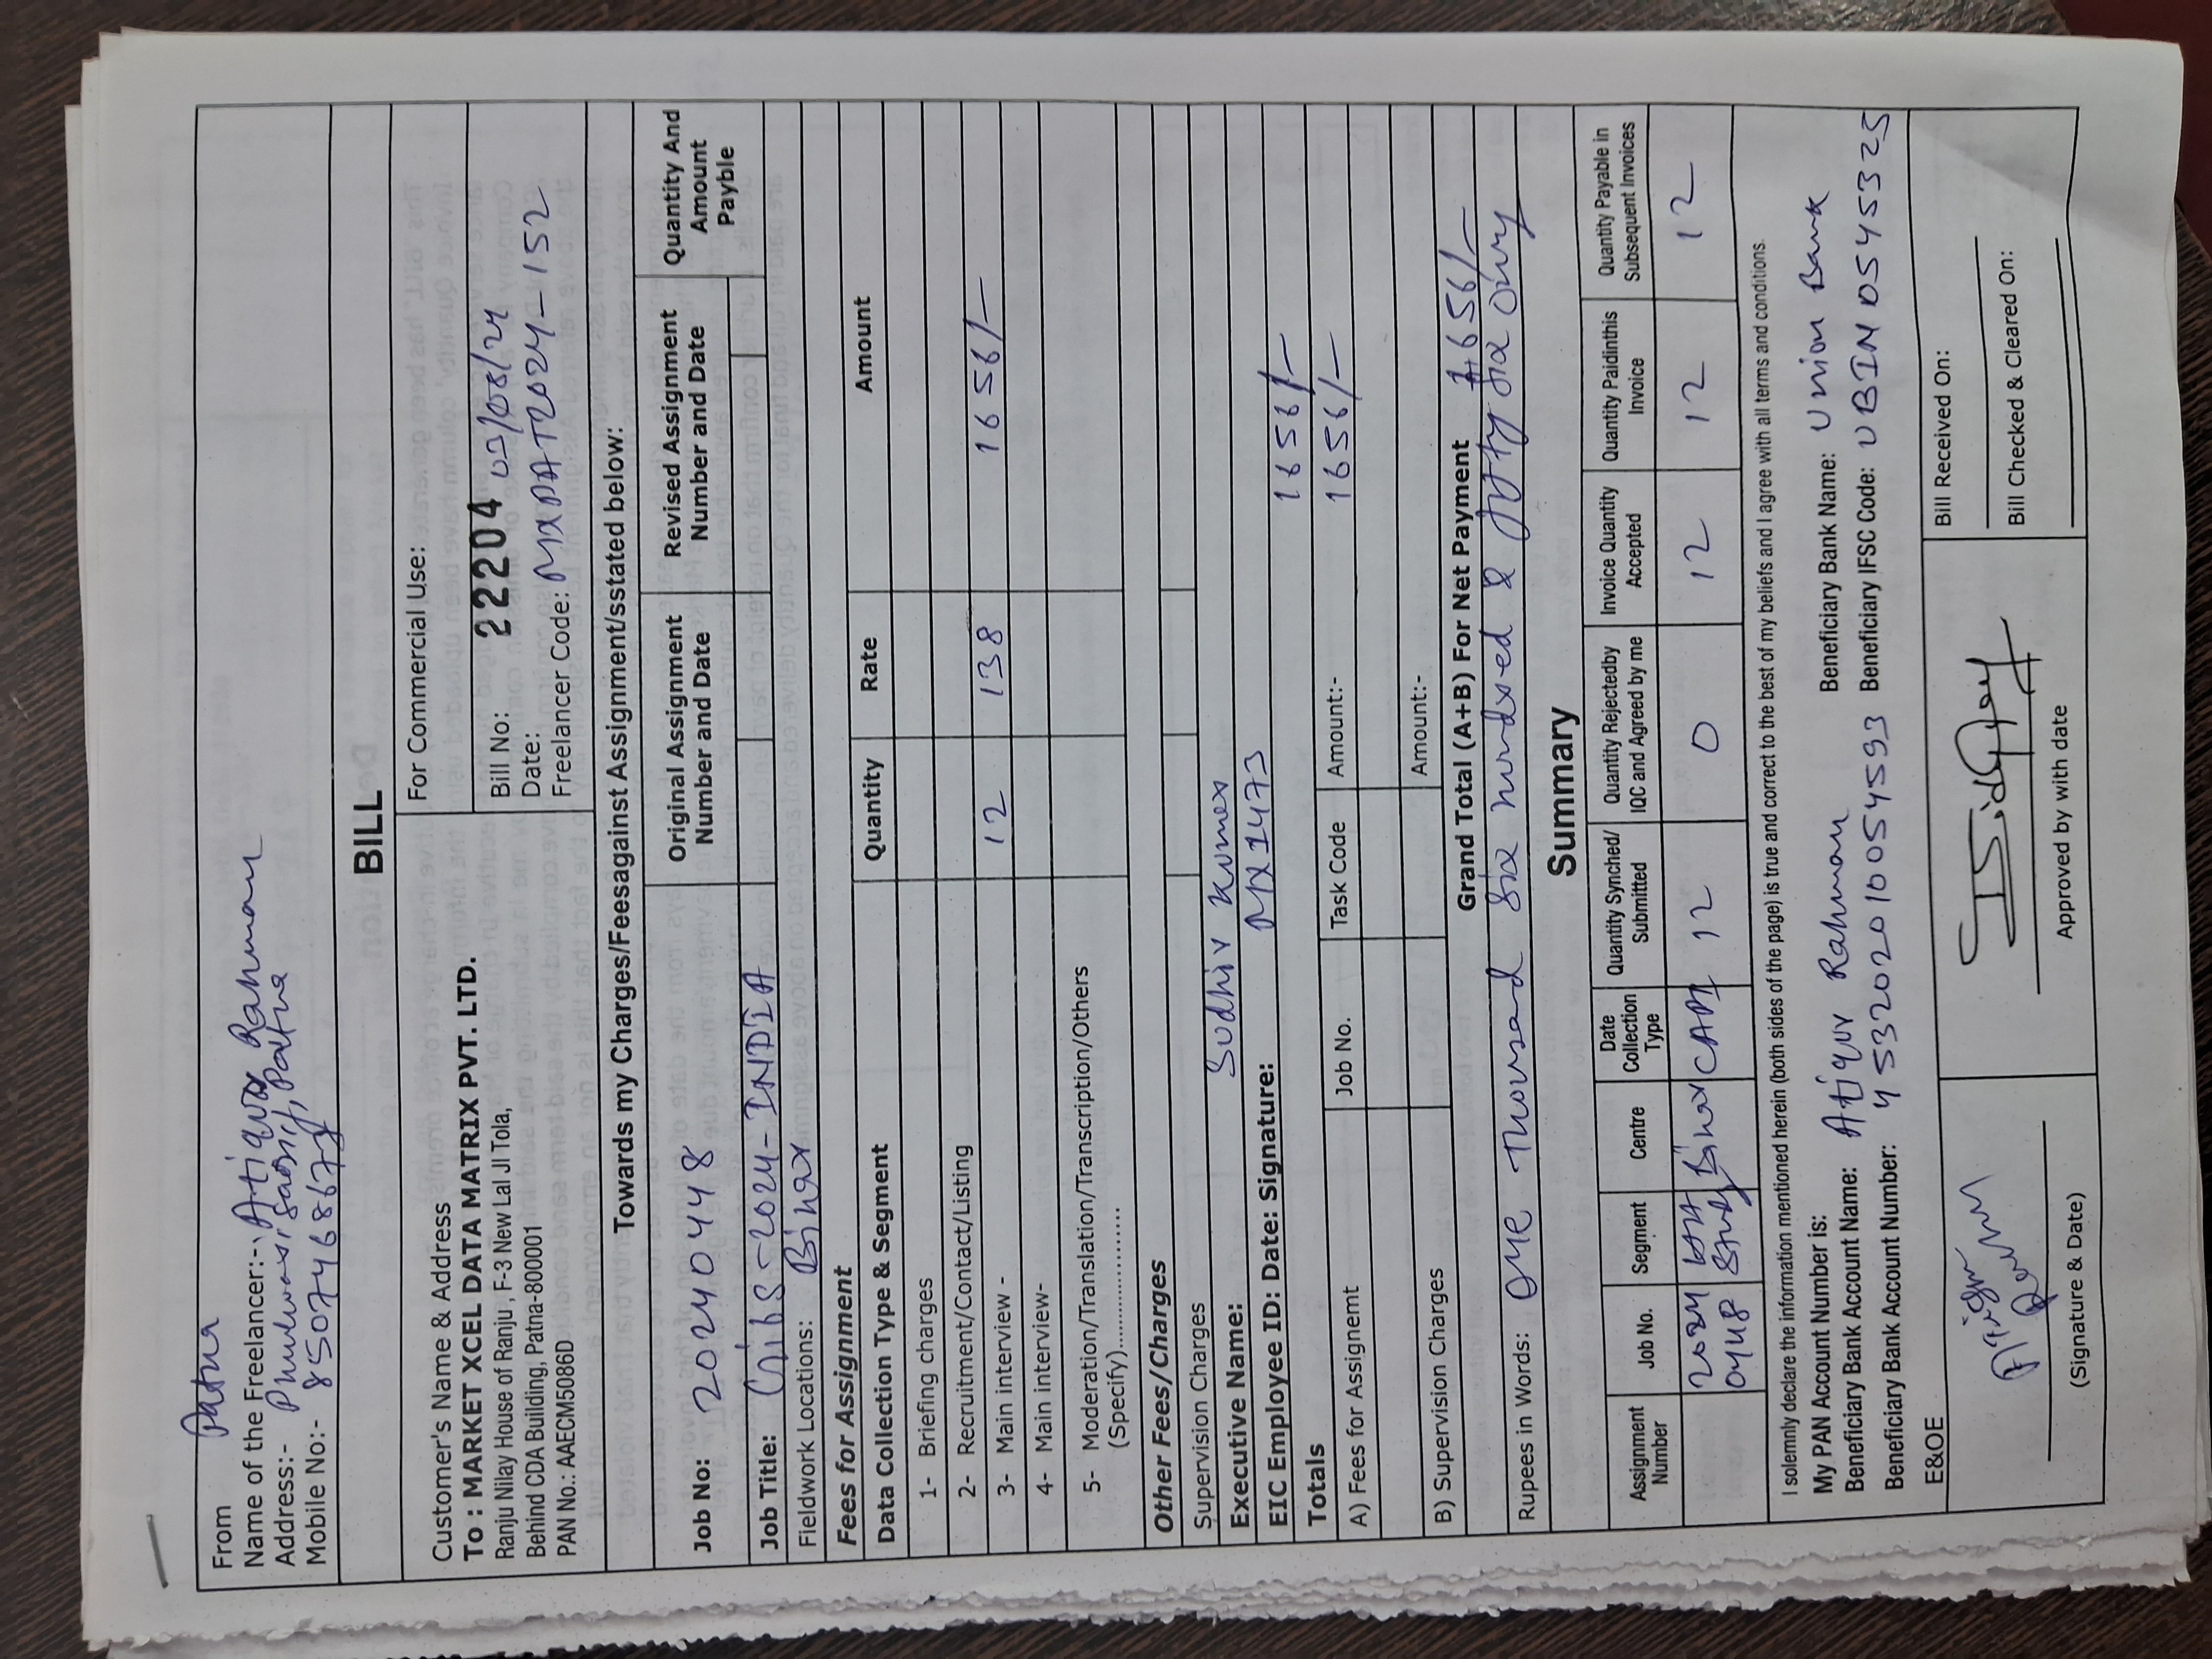 Patna
From
Name of the Freelancer:- Atiqur Rahman
Address:- Phulwari Sarif, Patna
Mobile No:-
BILL
Customer's Name & Address
To : MARKET XCEL DATA MATRIX PVT. LTD.
Ranju Nilay House of Ranju , F-3 New Lal JI Tola,
Behind CDA Building, Patna-8000001
PAN No.: AAECM5086D
For Commercial Use:
Bill No: 22204
Date:
Freelancer Code: MXPAT2024-152
Towards my Charges/Feesagainst Assignment/sstated below:
Original Assignment Number and Date
Revised Assignment Number and Date
Quantity And Amount Payble
Job No: 20240448
Job Title: -2024-INDIA
Fieldwork Locations: Bihar
Fees for Assignment
Data Collection Type & Segment Quantity Rate Amount
1- Briefing charges
2- Recruitment/Contact/Listing
3- Main interview - 12 138 1656/-
4- Main interview-
5- Moderation/Translation/Transcription/Others
(Specify)....................
Other Fees/Charges
Supervision Charges
Executive Name: Sudhir Kumar
EIC Employee ID: Date: Signature: MX1473
Totals 1656/-
A) Fees for Assignemt Job No. Task Code Amount:- 1656/-
B) Supervision Charges Amount:-
Grand Total (A+B) For Net Payment 1656/-
Rupees in Words: One Thousand Six Hundred & fifty Six Only
Summary
Assignment Number Job No. Segment Centre Date Collection Type Quantity Synched/ Submitted Quantity Rejectedby IQC and Agreed by me Invoice Quantity Accepted Quantity Paidinthis Invoice Quantity Payable in Subsequent Invoices
20240448 Study Bihar CAPI 12 0 12 12 12
I solemnly declare the information mentioned herein (both sides of the page) is true and correct to the best of my beliefs and I agree with all terms and conditions.
My PAN Account Number is:
Beneficiary Bank Account Name: Atiqur Rahman Beneficiary Bank Name: Union Bank
Beneficiary Bank Account Number: 453202010054593 Beneficiary IFSC Code: UBIN0545325
E&OE
(Signature & Date)
Approved by with date
Bill Received On:
Bill Checked & Cleared On: